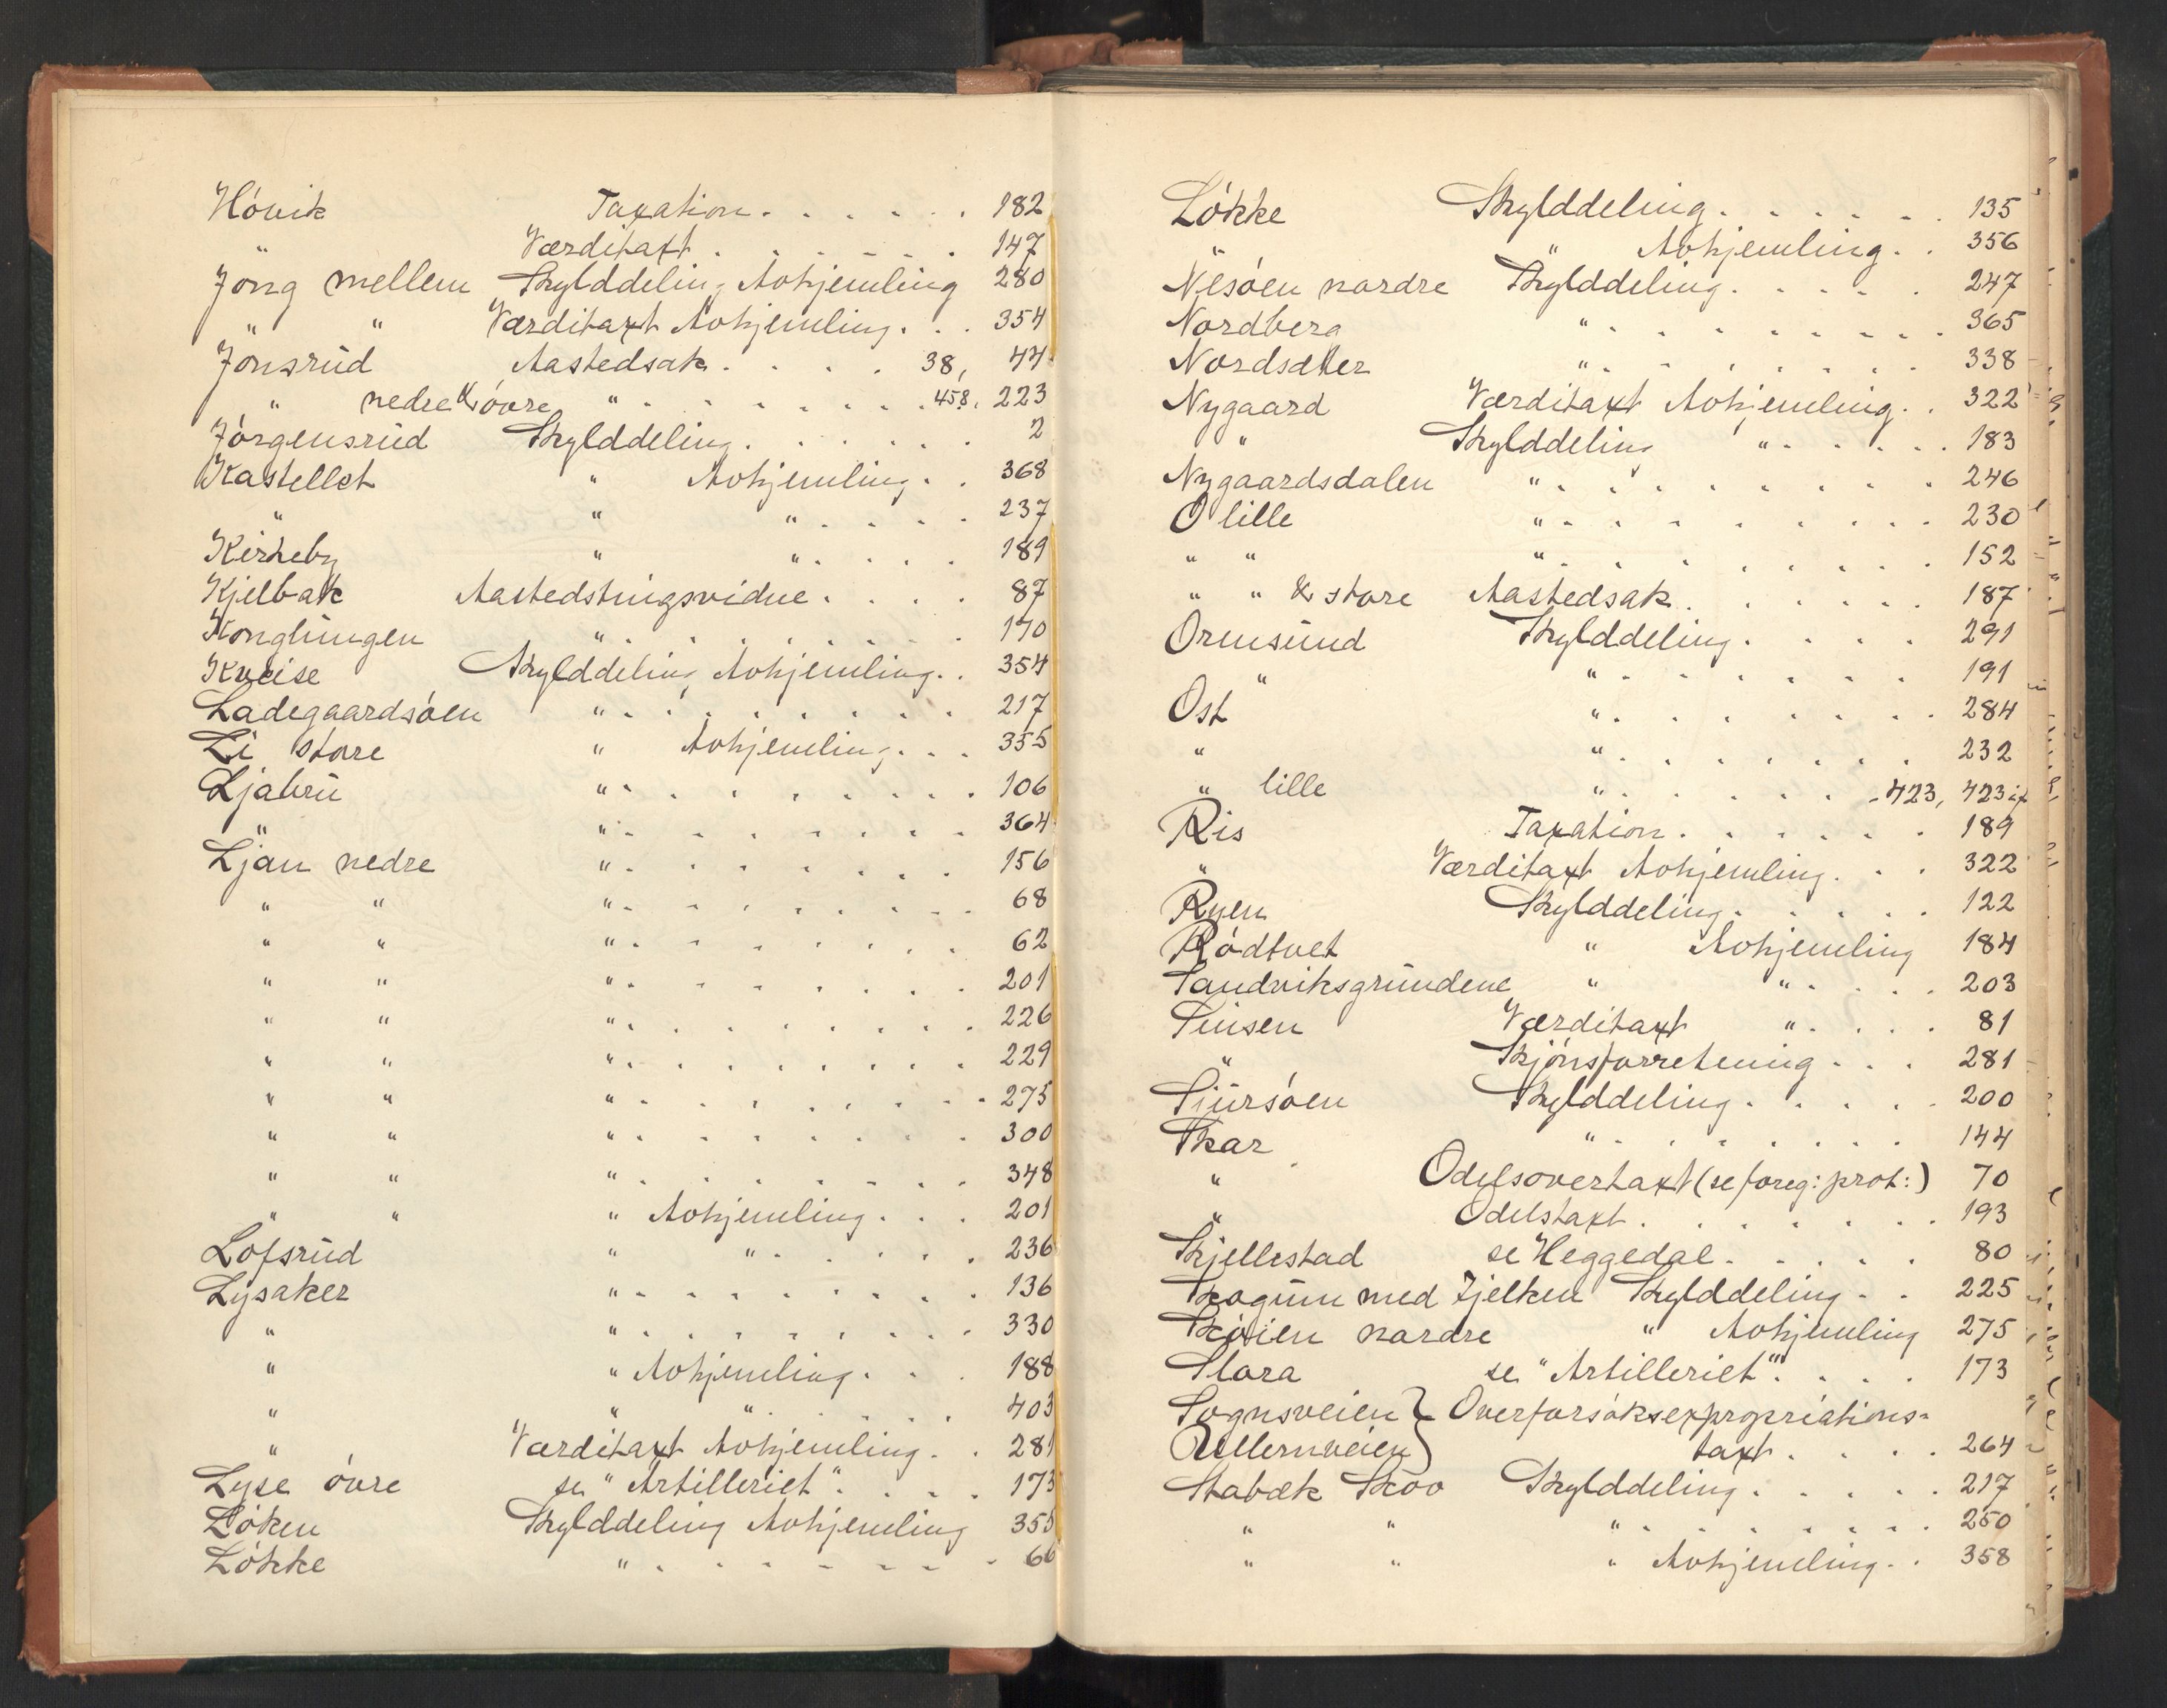 Hóvik Taxation. . . . . . 182
" Værditaxt . . . . . . 147
Jóng mellem Skylddeling Avhjemling 280
" " Værditaxt Avhjemling. . . 354
Jónsrud Aastedsak. . . . 38, 44
" nedre & óvre " . . . . . . . 458, 223
Jórgensrud Skylddeling. . . . . . 2
Kastellet " Avhjemling. . 368
" " " . . . . 237
Kirkeby " " . . . . 189
Kjelbak Aastedstingsvidne. . . . 87
Konglungen " . . . . . . . . . 170
Kveise Skylddeling Avhjemling. . 354
Ladegaardsóen " . . . . . . . . . 217
Li store " Avhjemling. . . 355
Ljabru " . . . . . . . . . 106
" " . . . . . . . . 364
Ljan nedre " . . . . . . . 156
" " " . . . . . . . . 68
" " " . . . . . . . 62
" " " . . . . . . . 201
" " " . . . . . . . . . 226
" " " . . . . . . . . 229
" " " . . . . . . . . . 275
" " " . . . . . . . 300
" " " . . . . . . . 348
" " " Avhjemling. . . 201
Lofsrud " " . . . . . 236
Lysaker " . . . . . . . . 136
" " . . . . . . . . 330
" " Avhjemling. . . 188
" " " . . . . . 403
" Værditaxt Avhjemling. . 281
Lyse óvre se "Artilleriet". . . . 173
Lóken Skylddeling Avhjemling 355
Lókke " . . . . . . . 66
Lókke Skylddeling. . . . . . 135
" " Avhjemling. . 356
Nesóen nordre Skylddeling. . . . . 247
Nordberg " . . . . . . . . . 365
Nordsæter " . . . . . . . 338
Nygaard Værditaxt Avhjemling. . 322
" Skylddeling " . . . . . 183
Nygaardsdalen " . . . . . . . . . 246
O lille " . . . . . . . . 230
" " " . . . . . . . . . 152
" " & store Aastedsak. . . . . . . 187
Ormsund Skylddeling. . . . . 291
" " . . . . . . . 191
Ost " . . . . . . . . 284
" " . . . . . . . 232
" lille " . . . . . . . 423, 423
Ris Taxation. . . . . . 189
" Værditaxt Avhjemling. . . 322
Ryen Skylddeling. . . . . . 122
Ródtvet " Avhjemling 184
Sandviksgrundene " " . . . . 203
Sinsen Værditaxt " . . . . 81
" Skjónsforretening . . . 281
Sjursóen Skylddeling. . . . . 200
Skar " . . . . . . . . 144
" Odelsovertaxt (se foreg: prot:) 70
" Odelstaxt. . . . . . . . 193
Skjellestad se Heggedal. . . . . 80
Skogum med Fjelken Skylddeling . . 225
Skóien nordre " Avhjemling 275
Slora se "Artilleriet". . . . 173
Sognsveien } Overforsóksexpropriations-
Ullernveien } taxt. . . . . 264
Stabæk Skov Skylddeling. . . . . 217
" " " . . . . . . . 250
" " " Avhjemling. . 358